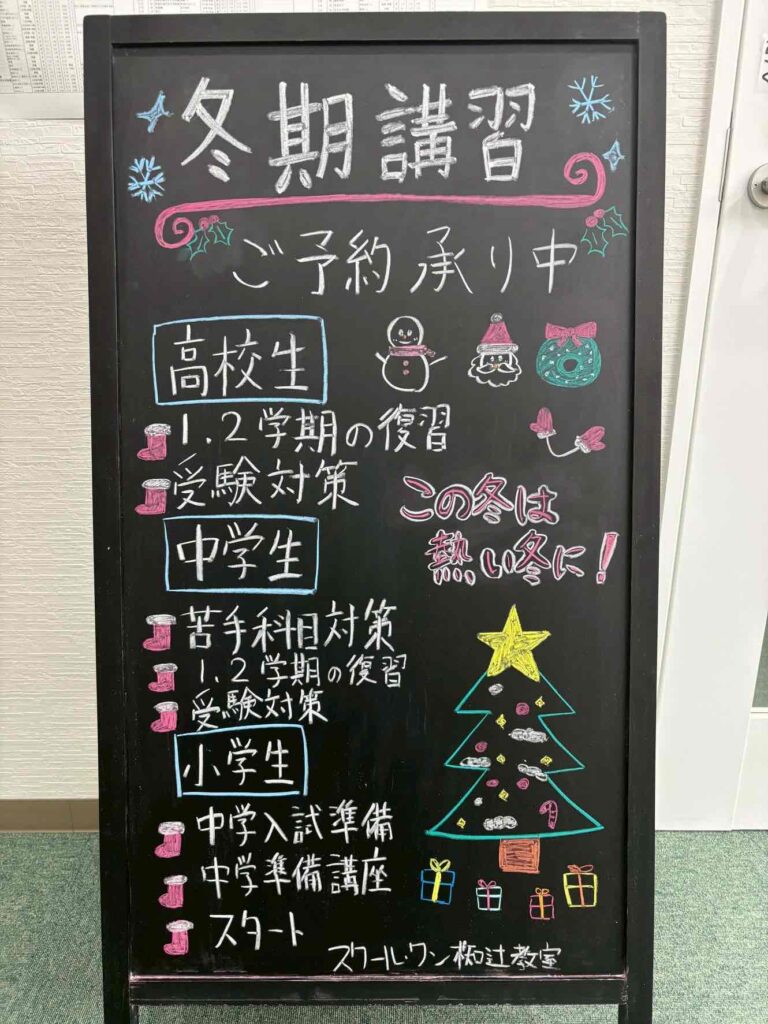 冬期講習
ご予約承り中
高校生
1.2学期の復習
受験対策
この冬は
熱い冬に!
中学生
苦手科目対策
1.2学期の復習
受験対策
小学生
中学入試準備
中学準備講座
スタート
スクール・ワン椥辻教室